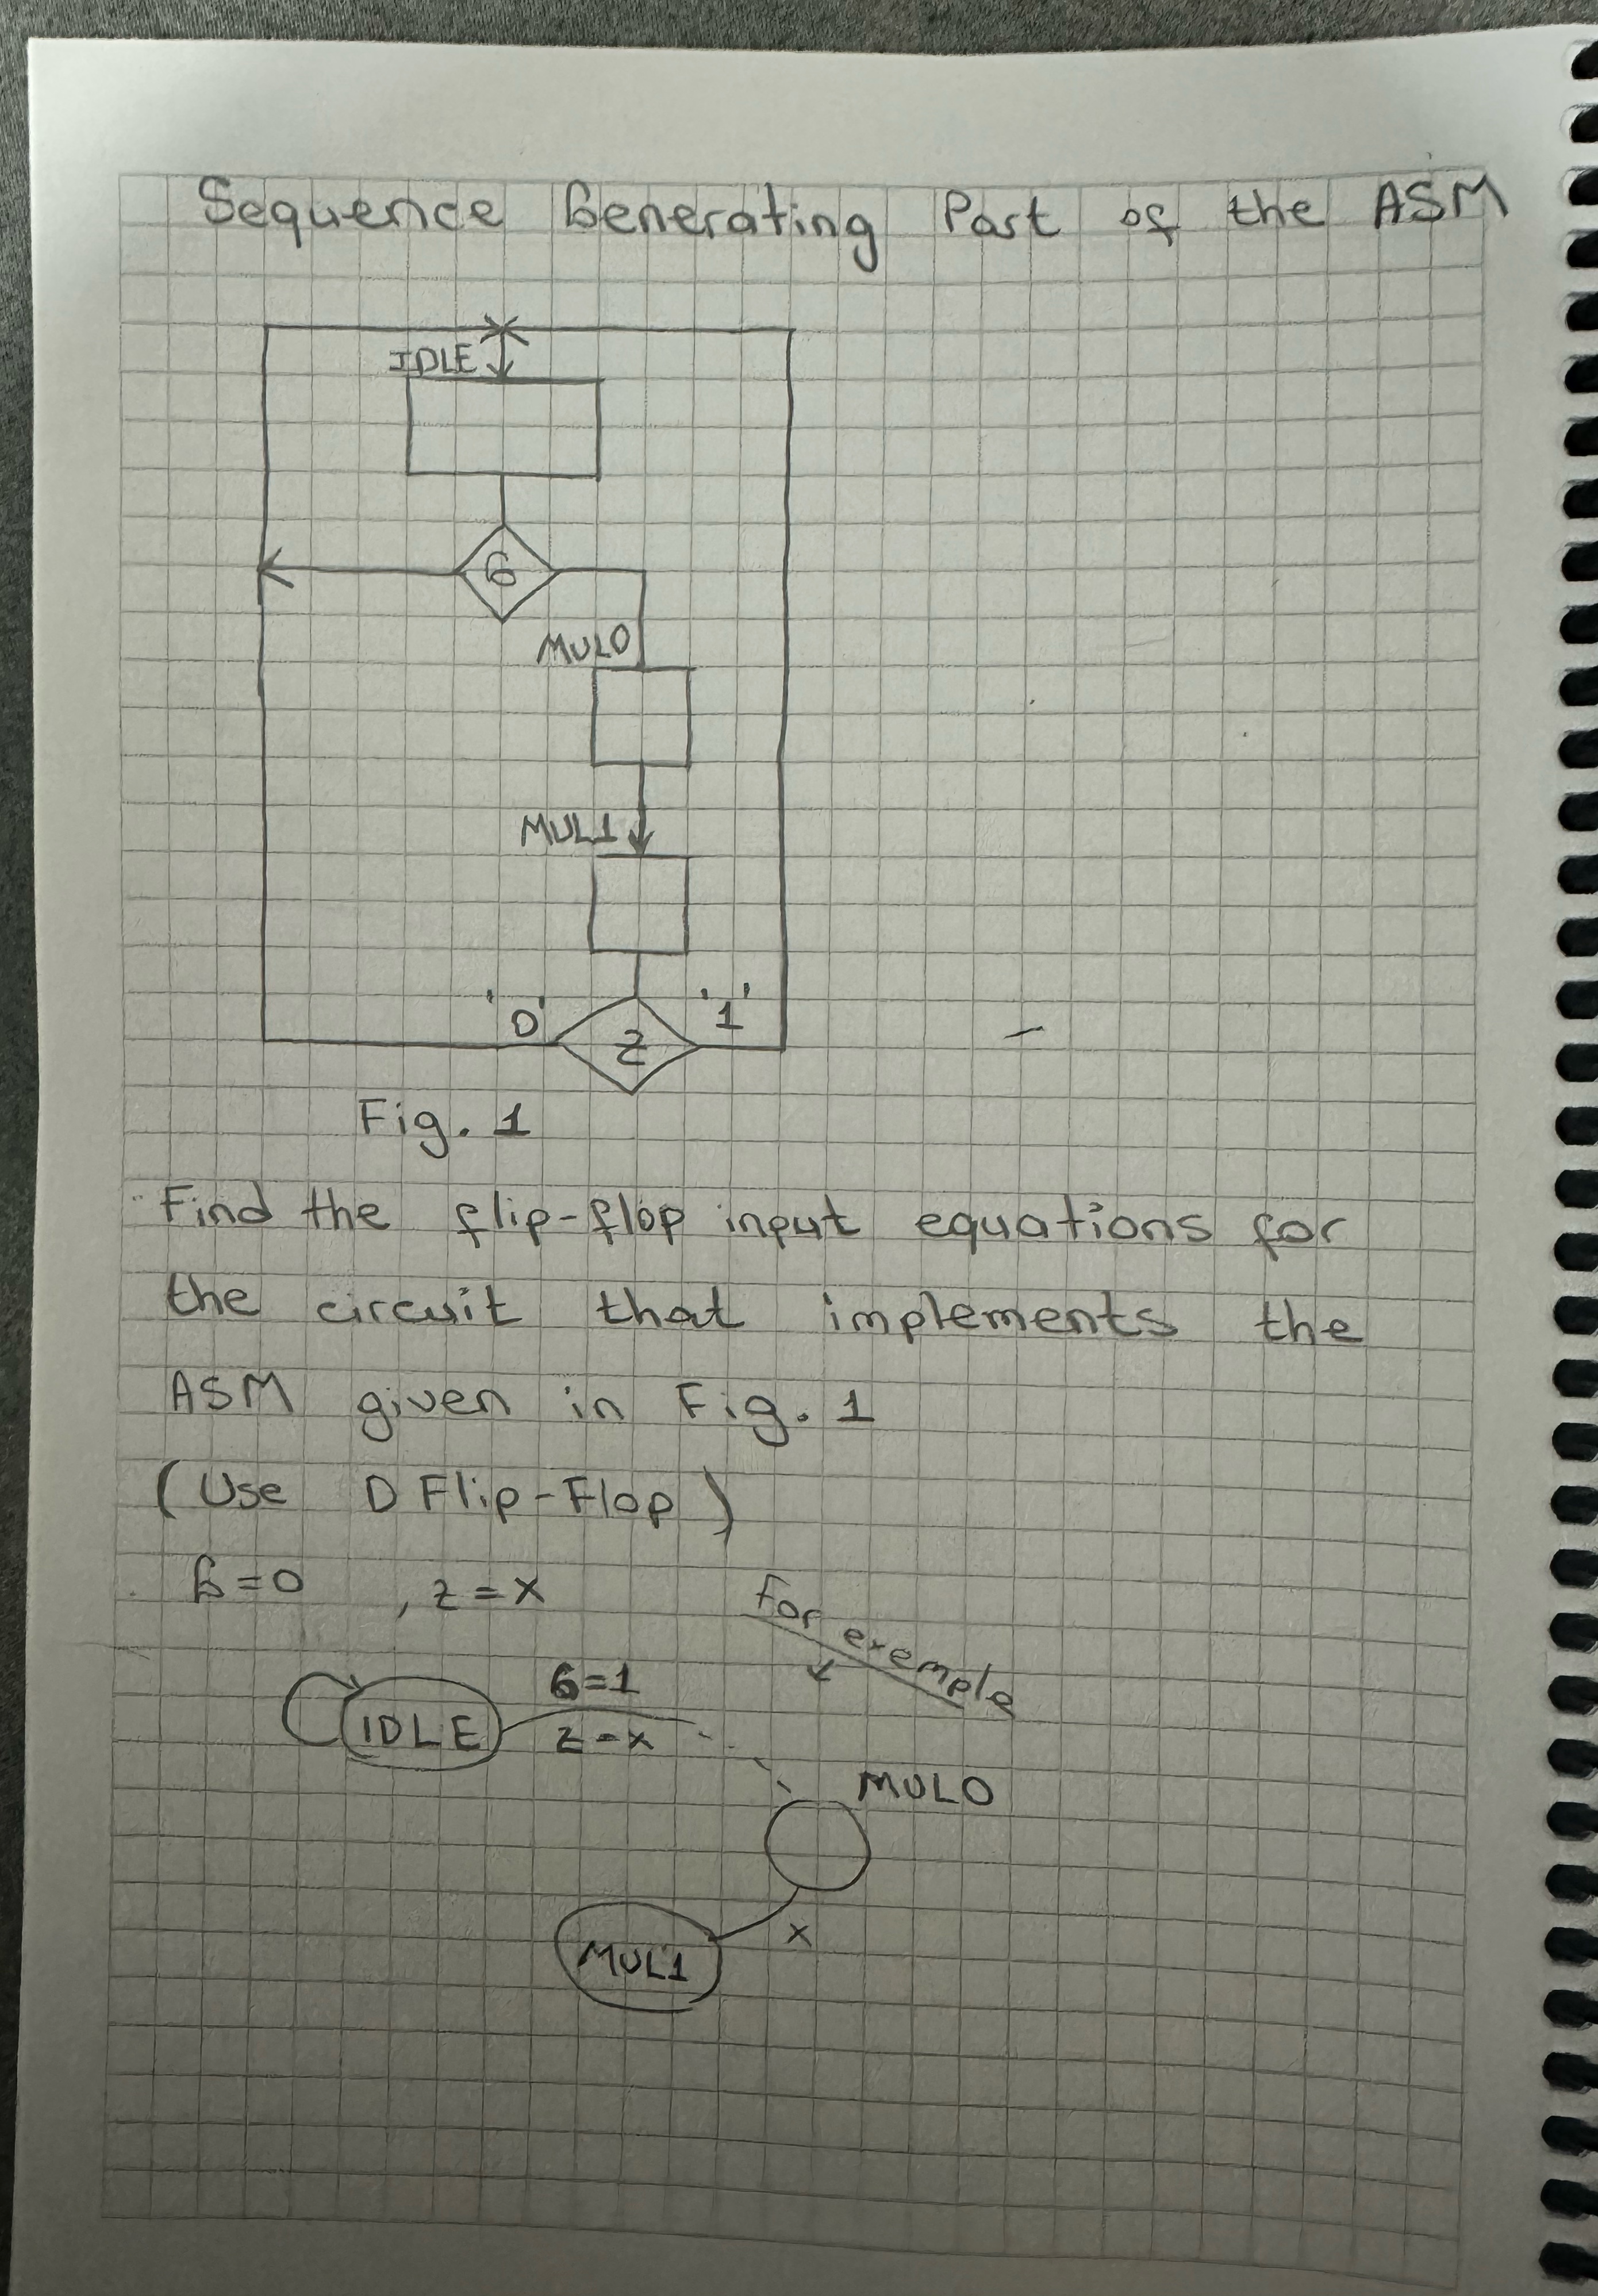 Sequence Generating Part of the ASM
IDLE
G
MUL0
MUL1
'0' Z '1'
Fig. 1
Find the flip-flop input equations for
the circuit that implements the
ASM given in Fig. 1
(Use D Flip-Flop)
G=0 , z=x
For exemple
G=1
IDLE
z=x
MUL0
x
MUL1